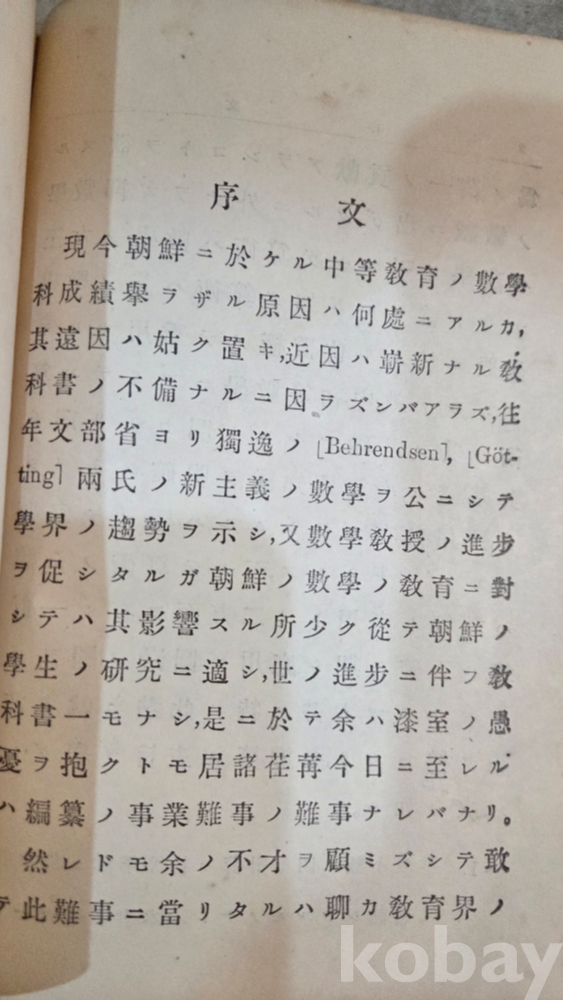 序文
現今朝鮮ニ於ケル中等敎育ノ數學
科成績擧ラザル原因ハ何處ニアルカ,
其遠因ハ姑ク置キ,近因ハ嶄新ナル敎
科書ノ不備ナルニ因ラズンバアラズ,往
年文部省ヨリ獨逸ノ[Behrendsen], [Göt-
ting]兩氏ノ新主義ノ數學ヲ公ニシテ
學界ノ趨勢ヲ示シ,又數學敎授ノ進步
ヲ促シタルガ朝鮮ノ數學ノ敎育ニ對
シテハ其影響スル所少ク從テ朝鮮ノ
學生ノ研究ニ適シ,世ノ進步ニ伴フ敎
科書一モナシ,是ニ於テ余ハ漆室ノ愚
憂ヲ抱クトモ居諸荏苒今日ニ至レル
ハ編纂ノ事業難事ノ難事ナレバナリ。
然レドモ余ノ不才ヲ顧ミズシテ敢
テ此難事ニ當リタルハ聊カ敎育界ノ
kobay